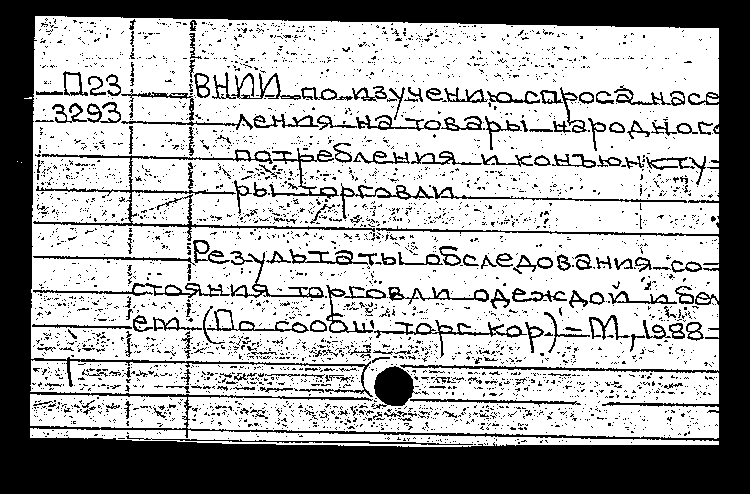 П23 ВНИИ по изучению спроса насе
3293 ления на товары народного
потребления и конъюнкту-
ры торговли.
Результаты обследования со-
стояния торговли одеждой и бел
ем. (По сообщ. торг. кор.) - М., 1988-